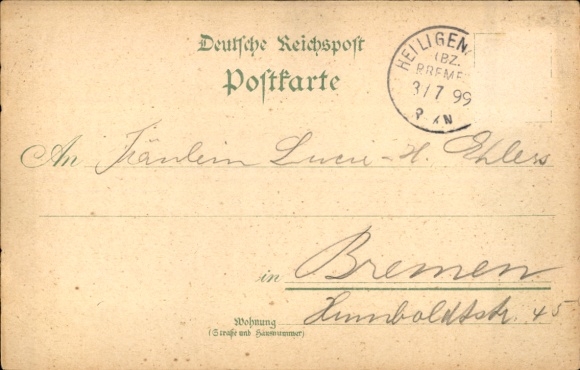 Deutsche Reichspost
Postkarte
HEILIGEN
(BZ.
BREME
3/7 99
N
An Fräulein Lucie H. Ehlers
in Bremen
Humboldtstr. 45
Wohnung
(Straße und Hausnummer)